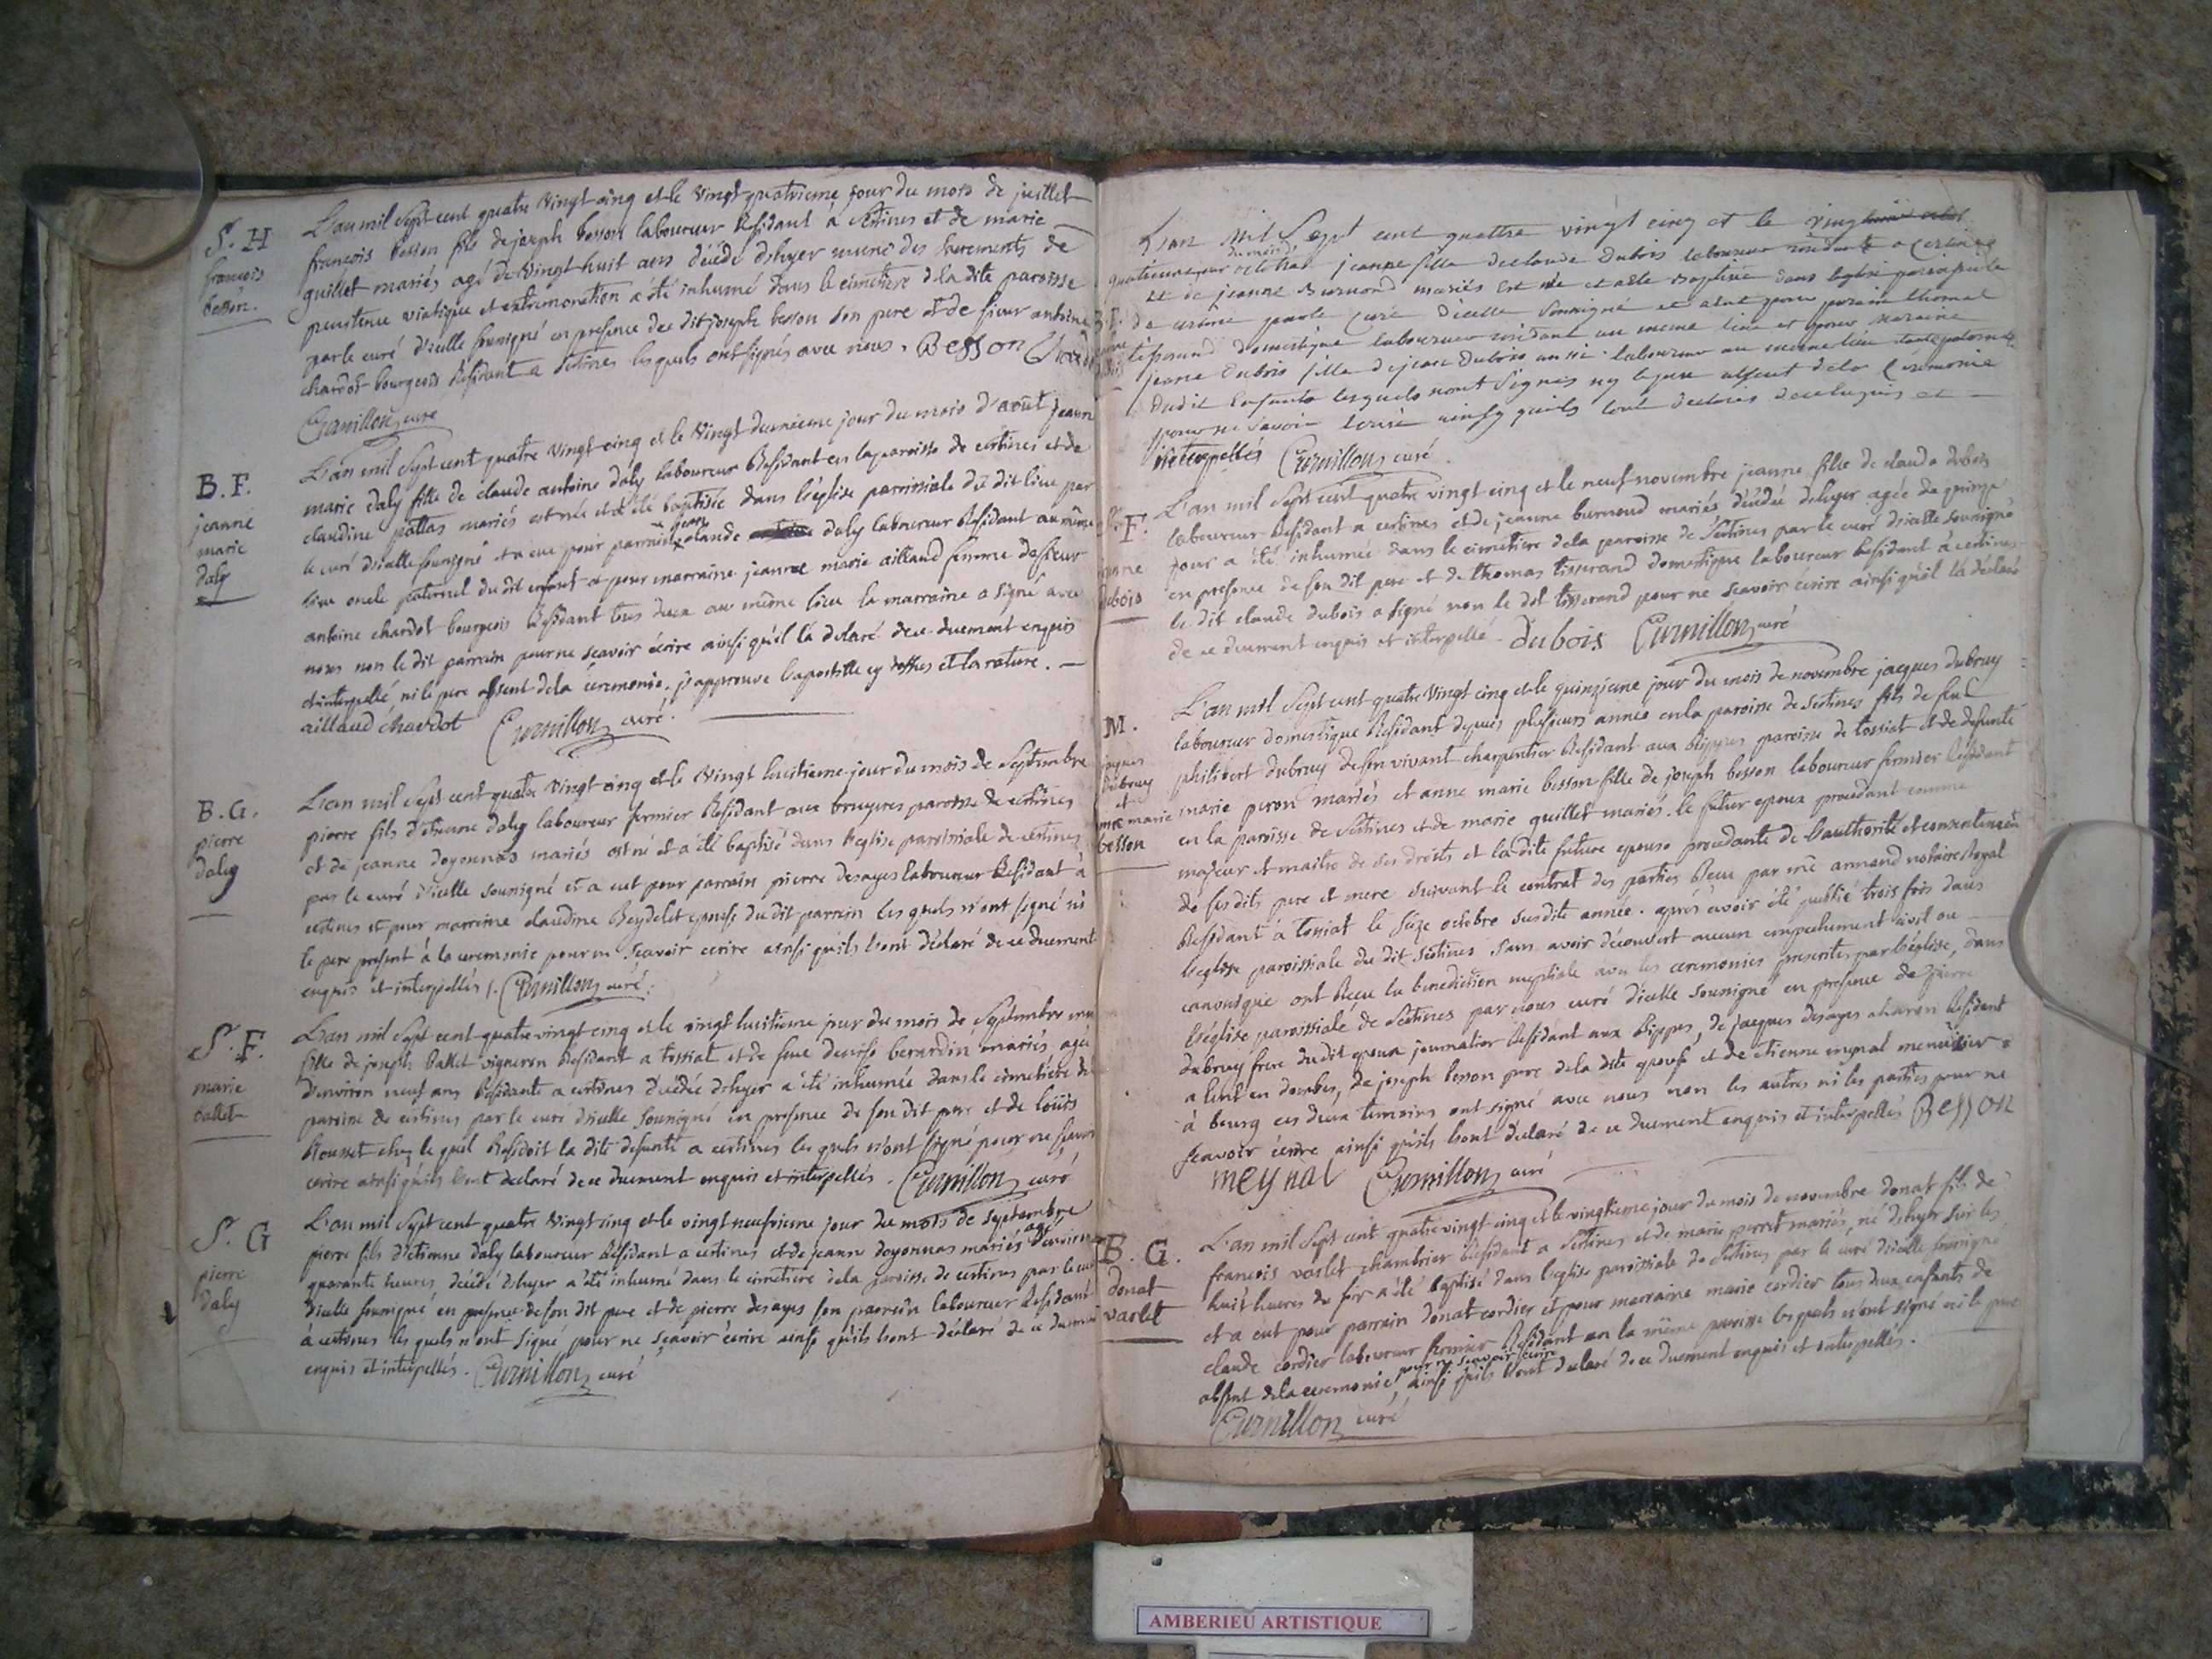 S. H
françois
besson.
L'an mil Sept cent quatre vingt cinq et le vingt quatrieme jour du mois de juillet
françois besson fils de joseph besson laboureur Résidant à Sertines et de marie
guillet mariés agé de vingt huit ans décédé d'hyer muni des sacrements de
penitence viatique et extremonction a été inhumé dans le cimetiere de la dite paroisse
par le curé d'icelle soussigné en presence du dit joseph besson son pere et de sieur antoine
chardot bourgeois Résidant a Sertines lesquels ont signés avec nous. Besson
Curnillon curé
B. F.
jeanne
marie
daly
L'an mil Sept cent quatre vingt cinq et le vingt deuxieme jour du mois d'août jeanne
marie daly fille de claude antoine daly laboureur Résidant en la paroisse de certines et de
claudine pallas mariés est née et a été baptisée dans l'église parroissiale du dit lieu par
le curé d'icelle soussigné et a eu pour parrain jean claude daly laboureur Résidant au même
lieu oncle paternel du dit enfant et pour marraine jeanne marie aillaud femme de sieur
antoine chardot bourgeois Résidant tous deux au même lieu la marraine a signé avec
nous non le dit parrain pour ne scavoir écrire ainsi qu'il l'a declaré de ce duement enquis
et interpellé, ni le pere absent de la céremonie. j'approuve l'apostille cy dessus et la rature. —
aillaud chardot Curnillon curé.
B. G.
pierre
daly
L'an mil Sept cent quatre vingt cinq et le vingt huitieme jour du mois de Septembre
pierre fils d'étienne daly laboureur fermier Résidant aux bruyeres paroisse de certines
et de jeanne doyonnas mariés est né et a été baptisé dans l'eglise paroissiale de certines
par le curé d'icelle soussigné et a eut pour parrain pierre desayes laboureur Résidant à
certines et pour marraine claudine Beydelet epouse du dit parrain lesquels n'ont signé ni
le pere present à la ceremonie pour ne scavoir ecrire ainsi qu'ils l'ont déclaré de ce duement
enquis et interpellés /. Curnillon curé.
S. F.
marie
ballet
L'an mil Sept cent quatre vingt cinq et le vingt huitieme jour du mois de Septembre
fille de joseph ballet vigneron Résidant a tossiat et de feue denise berardin mariés agée
d'environ neuf ans Résidante a certines décédée d'hyer a été inhumée dans le cimetiere de
paroisse de certines par le curé d'icelle soussigné en presence de son dit pere et de loüis
Rousset chez le quel Résidoit la dite defunte a certines lesquels n'ont signé pour ne scavoir
ecrire ainsi qu'ils l'ont declaré de ce duement enquis et interpellés. Curnillon curé
S. G
pierre
daly
L'an mil Sept cent quatre vingt cinq et le vingt neufvieme jour du mois de septembre
pierre fils d'etienne daly laboureur Résidant a certines et de jeanne doyonnas mariés agé d'environ
quarante heures, décédé d'hyer a été inhumé dans le cimetiere de la paroisse de certines par le curé
d'icelle soussigné en presence de son dit pere et de pierre desayes son parrein laboureur Résidant
à certines les quels n'ont signé pour ne sçavoir écrire ainsi qu'ils l'ont déclaré de ce duement
enquis et interpellés. Curnillon curé
L'an Mil Sept cent quattre vingt cinq et le vingt
quatrieme jour du mois d'octobre jeanne fille declaude Dubois laboureur residant a Certines
et de jeanne Burnond mariés est née et aeté Baptisée dans leglise paroissialle
de certine par le curé dicelle soussigné et a eut pour parain thomas
tisserand domestique laboureur residant au meme lieu et pour maraine
jeanne Dubois fille de jean Dubois aussi laboureur au meme lieu tante paternelle
dudit Enfants lesquels nont Signés ny le pere absent dela Ceremonie
pour ne scavoir Ecrire ainsy quils lont declarés de ce enquis et —
interpellés Curnillon curé.
S. F.
jeanne
dubois
L'an mil Sept cent quatre vingt cinq et le neuf novembre jeanne fille de claude dubois
laboureur Résidant a certines et de jeanne burnoud mariés décédée d'hyer agée de quinze
jour a été inhumée dans le cimetiere de la paroisse de Sertines par le curé d'icelle soussigné
en presence de son dit pere et de thomas tisserand domestique laboureur Résidant à certines
le dit claude dubois a signé non le dit tisserand pour ne scavoir ecrire ainsi qu'il l'a déclaré
de ce duement enquis et interpellé. dubois Curnillon curé
M.
jaques
dubruy
et
anne marie
besson
L'an mil Sept cent quatre vingt cinq et le quinzieme jour du mois de novembre jacques dubruy
laboureur domestique Résidant depuis plusieurs années en la paroisse de Sertines fils de feu
philibert dubruy de son vivant charpentier Résidant aux Rippes paroisse de tossiat et de defunte
marie peron mariés et anne marie besson fille de joseph besson laboureur fermier Résidant
en la paroisse de Sertines et de marie guillet mariés. le futur epoux procedant comme
majeur et maitre de ses droits et la dite future epouse procedante de l'authorité et consentement
de ses dits pere et mere suivant le contrat des parties Recu par me armand notaire Royal
Résidant à tossiat le seize octobre susdite année. aprés avoir été publié trois fois dans
l'eglise paroissiale du dit Sertines sans avoir découvert aucun empechement civil ou
canonique ont Recu la benediction nuptiale avec les ceremonies prescrites par l'église, dans
l'église paroissiale de Sertines par nous curé d'icelle soussigné en presence de pierre
dubruy frere du dit epoux journalier Résidant aux Rippes, de jacques desayes charon Résidant
a lent en dombes, de joseph besson pere de la dite epouse et de etienne mynal menuisier
à bourg ces deux temoins ont signé avec nous non les autres ni les parties pour ne
scavoir écrire ainsi qu'ils l'ont declaré de ce duement enquis et interpellés Besson
meynal Curnillon curé
B. G.
donat
varlet
L'an mil Sept cent quatre vingt cinq et le vingtieme jour du mois de novembre donat fils de
françois varlet chambrier Résidant a Sertines et de marie perret mariés, né d'hyer sur les
huit heures du soir a été baptisé dans l'eglise paroissiale de Sertines par le curé d'icelle soussigné
et a eut pour parrain donat cordier et pour marraine marie cordier tous deux enfants de
claude cordier laboureur fermier Résidant en la même paroisse lesquels n'ont signé ni le pere
absent de la ceremonie pour ne scavoir ecrire ainsi qu'ils l'ont declaré de ce duement enquis et interpellés.
Curnillon curé
AMBERIEU ARTISTIQUE